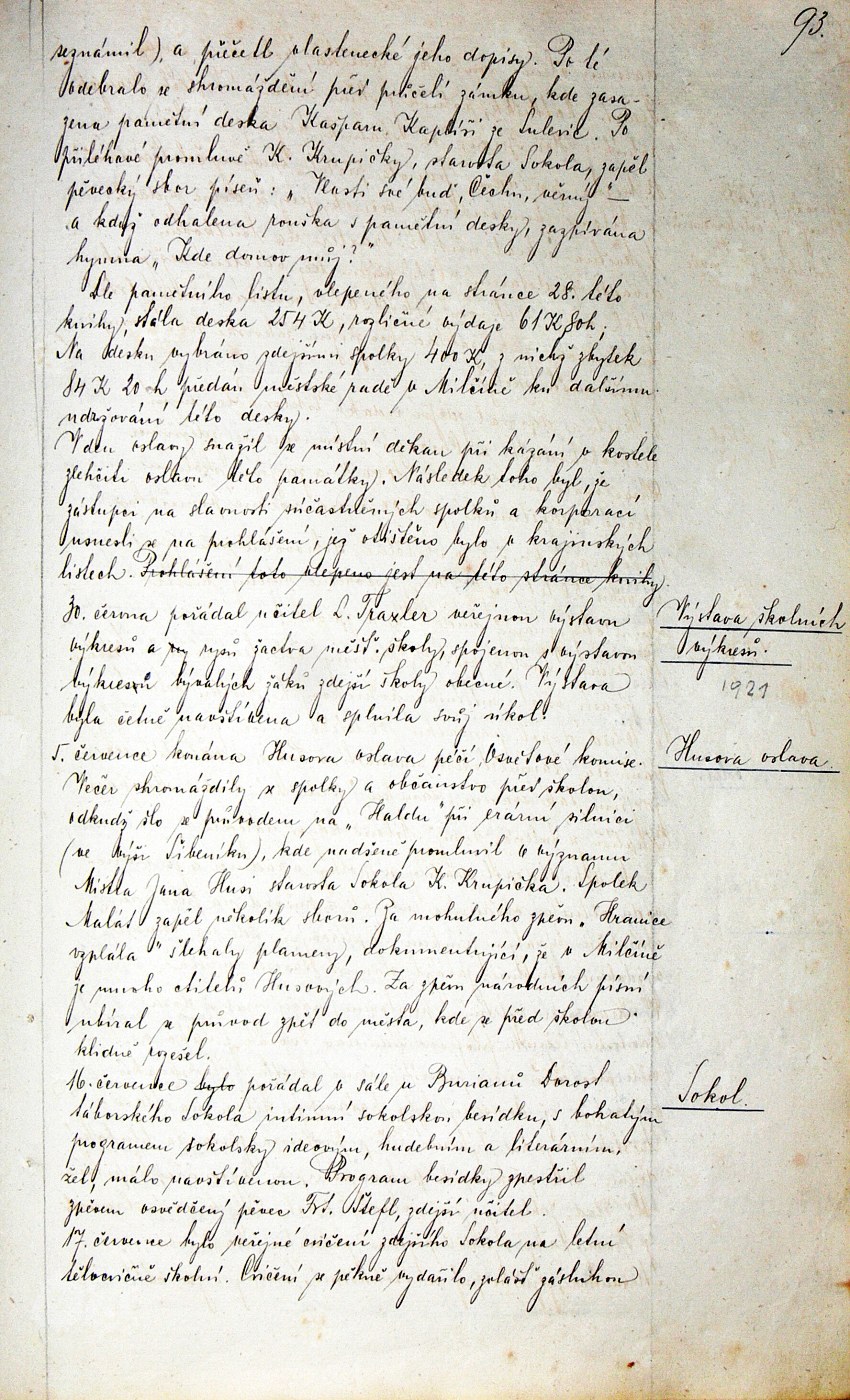 93.
seznámil), a přečetl vlastenecké jeho dopisy. Po té
odebralo se shromáždění před průčelí zámku, kde zasa-
zena pamětní deska Kašparu Kaplíři ze Sulevic. Po
přiléhavé promluvě K. Krupičky, starosta Sokola, zapěl
pěvecký sbor píseň: „Vlasti své buď, Čechu, věrný" —
a když odhalena rouška s pamětní desky, zazpívána
hymna „Kde domov můj?"
Dle pamětního listu, vlepeného na stránce 28. této
knihy, stála deska 254 K, rozličné výdaje 61 K 80h;
Na desku vybráno zdejšími spolky 400 K, z nichž zbytek
84 K 20 h předán městské radě v Milčíně ku dalšímu
udržování této desky.
V den oslavy snažil se místní děkan při kázání v kostele
zlehčiti oslavu této památky. Následek toho byl, že
zástupci na slavnosti súčastněných spolků a korporací
usnesli se na prohlášení, jež otištěno bylo v krajinských
listech. Prohlášení toto vlepeno jest na této stránce knihy.
30. června pořádal učitel L. Traxler veřejnou výstavu
výkresů a rysů žactva měšť. školy, spojenou s výstavou
výkresů bývalých žáků zdejší školy obecné. Výstava
byla četně navštívena a splnila svůj úkol.
Výstava školních
výkresů.
1921
5. července konána Husova oslava péčí Osvětové komise.
Večer shromáždily se spolky a občanstvo před školou,
odkudž šlo se průvodem na „Haldu" při erární silnici
(ve výši Šibeníku), kde nadšeně promluvil o významu
Mistra Jana Husi starosta Sokola K. Krupička. Spolek
Malát zapěl několik sborů. Za mohutného zpěvu „Hranice
vzplála" šlehaly plameny, dokumentující, že v Milčíně
je mnoho ctitelů Husových. Za zpěvu národních písní
ubíral se průvod zpět do města, kde se před školou
klidně rozešel.
Husova oslava.
16. července bylo pořádal v sále u Burianů Dorost
táborského Sokola intimní sokolskou besídku, s bohatým
programem sokolsky ideovým, hudebním a literárním,
žel, málo navštívenou. Program besídky zpestřil
zpěvem osvědčený pěvec Frt. Štefl, zdejší učitel.
17. července bylo veřejné cvičení zdejšího Sokola na letní
tělocvičně školní. Cvičení se pěkně vydařilo, zvlášť zásluhou
Sokol.